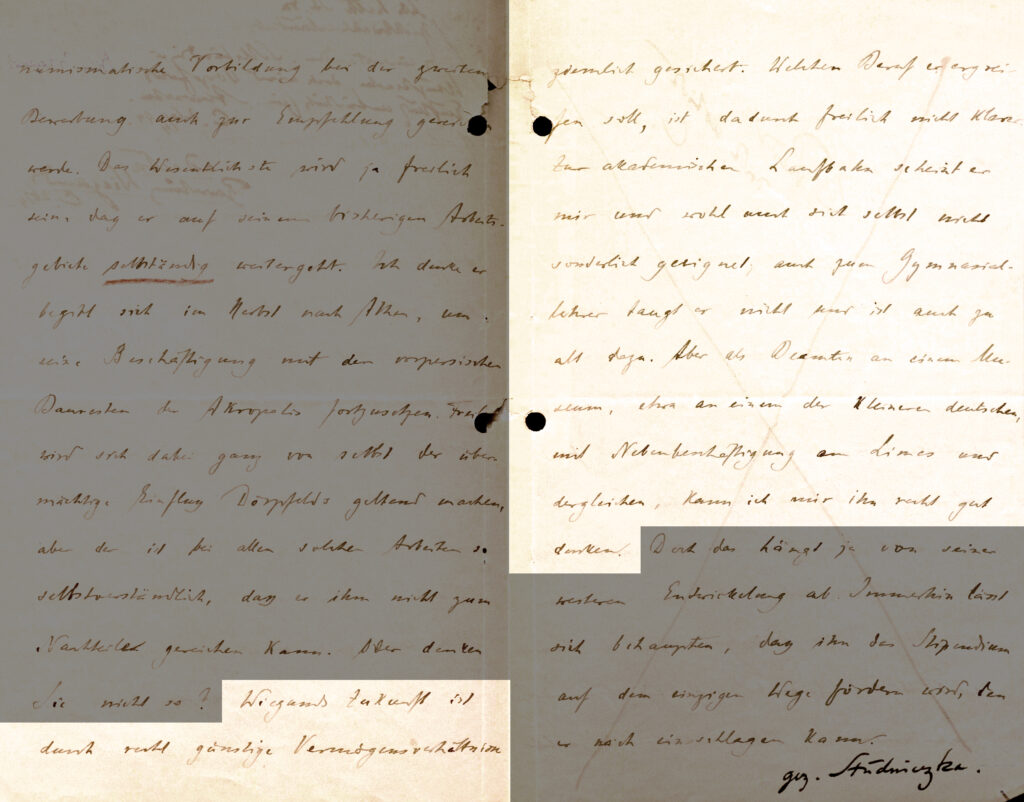 numismatische Vorbildung bei der zweiten
Bewerbung auch zur Empfehlung gereichen
werde. Das Wesentlichste wird ja freilich
sein, dass er auf seinem bisherigen Arbeits-
gebiete selbständig weitergeht. Ich denke er
begibt sich im Herbst nach Athen, um
seine Beschäftigung mit den vorpersischen
Bauresten der Akropolis fortzusetzen. Freilich
wird sich dabei ganz von selbst der über-
mächtige Einfluss Dörpfelds geltend machen,
aber der ist bei allen solchen Arbeiten so
selbstverständlich, dass er ihm nicht zum
Nachteile gereichen kann. Oder denken
Sie nicht so? Wiegands Zukunft ist
durch recht günstige Vermögensverhältnisse
ziemlich gesichert. Welchen Beruf er ergrei-
fen soll, ist dadurch freilich nicht klarer.
Zur akademischen Laufbahn scheint er
mir und wohl auch sich selbst nicht
sonderlich geeignet; auch zum Gymnasial-
lehrer taugt er nicht und ist auch zu
alt dazu. Aber als Beamten an einem Mu-
seum, etwa an einem der kleineren deutschen,
mit Nebenbeschäftigung am Limes und
dergleichen, kann ich mir ihn recht gut
denken. Doch das hängt ja von seiner
weiteren Entwickelung ab. Immerhin lässt
sich behaupten, dass ihn das Stipendium
auf dem einzigen Wege fördern wird, den
er noch einschlagen kann.
gez. Studniczka.